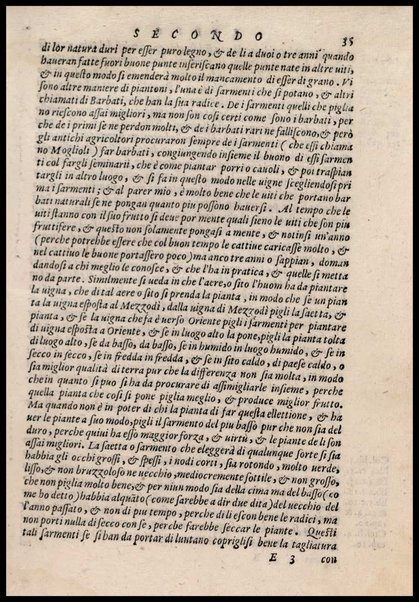 SECONDO 35
di lor natura duri per esser puro legno, & de li a duoi o tre anni quando
haueran fatte fuori buone punte inseriscano quelle punte nate in altre uiti,
& in questo modo si emenderà molto il mancamento di esser di grano. Vi
sono altre maniere di piantoni, l'una è di sarmenti che si potano, & altri
chiamati di Barbati, che han la sua radice. De i sarmenti quelli che piglia
no riescono assai migliori, ma non son così certi come sono i barbati, per
che de i primi se ne perdon molti, & de i barbati rari ne falliscono, & però
gli antichi agricoltori procuraron sempre de i sarmenti (che essi chiama
no Mogliols) far barbati, congiungendo insieme il buono di essi sarmen
ti col fargli seminarii, che è come piantar porri o cauoli, & poi traspian
targli in altro luogo, & si fa in questo modo nelle uigne scegliendosi pri
ma i sarmenti; & al parer mio, è molto bene che le uiti che portano bar
bati naturali se ne pongan quanto piu possono hauersi. Al tempo che le
uiti stanno con il suo frutto si deue por mente quali sieno le uiti che son piu
fruttifere, & questo non solamente pongasi a mente, & notinsi un'anno
(perche potrebbe essere che col buon tempo le cattiue caricasse molto, &
nel cattiuo le buone portassero poco) ma anco tre anni o sappian, doman
dandosi a chi meglio le conosce, & che l'ha in pratica, & quelle si metta
no da parte. Similmente si ueda in che l'aere, o sito l'huom ha da piantare
la uigna, che di tal aere o sito si prenda la pianta, in modo che se un pian
ta la uigna esposta al Mezzodì, dalla uigna di Mezzodì pigli la saetta, &
pianta, & se la uigna che fa è uerso Oriente pigli i sarmenti per piantare
di uigna esposta a Oriente, & se in luogo alto la pone, pigli la pianta tolta
di luogo alto, se da basso, da basso, se in humido in luogo humido, & se in
secco in secco, se in fredda in fredda, & se in sito caldo, di paese caldo, o
sia miglior qualità di terra pur che la differenza non sia molta, in modo
che in quanto si puo si ha da procurare di assimigliarle insieme, perche
quella pianta che così si pone piglia meglio, & produce miglior frutto.
Ma quando non è in poter di chi la pianta di far questa elettione, & ha
uer le piante a suo modo, pigli il sarmento del piu basso pur che non sia del
duro, perche quiui ha esso maggior forza, & uirtù, & le piante de lì son
assai migliori. La saetta o sarmento che eleggerà di qualunque sorte si sia
habbia gli occhi grossi, & spessi, i nodi corti, sia rotondo, molto uerde,
lisso, & non bruzzoloso ne uecchio, mediocremente sottile, & non grosso,
che non piglia molto bene, & per niun modo sia della cima ma del basso (co
me ho detto) habbia alquāto (come sarebbe a dir due dita) del uecchio del
l'anno passato, & non di piu tempo, perche gli esca di lì ben le radici, ma
non porti nulla di secco con se, perche farebbe seccar le piante. Questi
tali sarmenti se si han da portar di luntano copriglisi bene la tagliatura
E 3 con